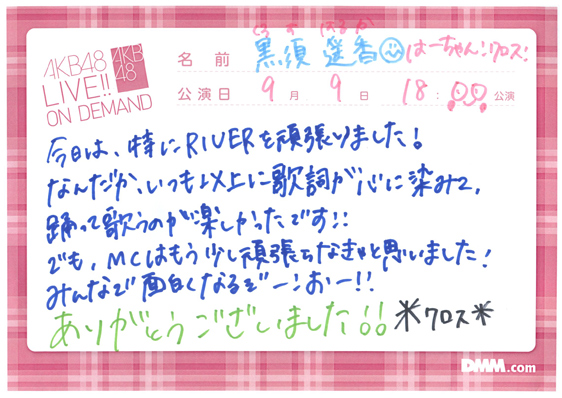 AKB48
LIVE!!
ON DEMAND
AKB
48
くろ す はるか
名前 黒須 遥香 はーちゃん:クロス:
公演日 9月 9日 18:00 公演
今日は、特にRIVERを頑張りました!
なんだか、いつも以上に歌詞が心に染みて、
踊って歌うのが楽しかったです!!
でも、MCはもう少し頑張らなきゃと思いました!
みんなで面白くなるぞー:おー!!
ありがとうございました!!
*クロス*
DMM.com